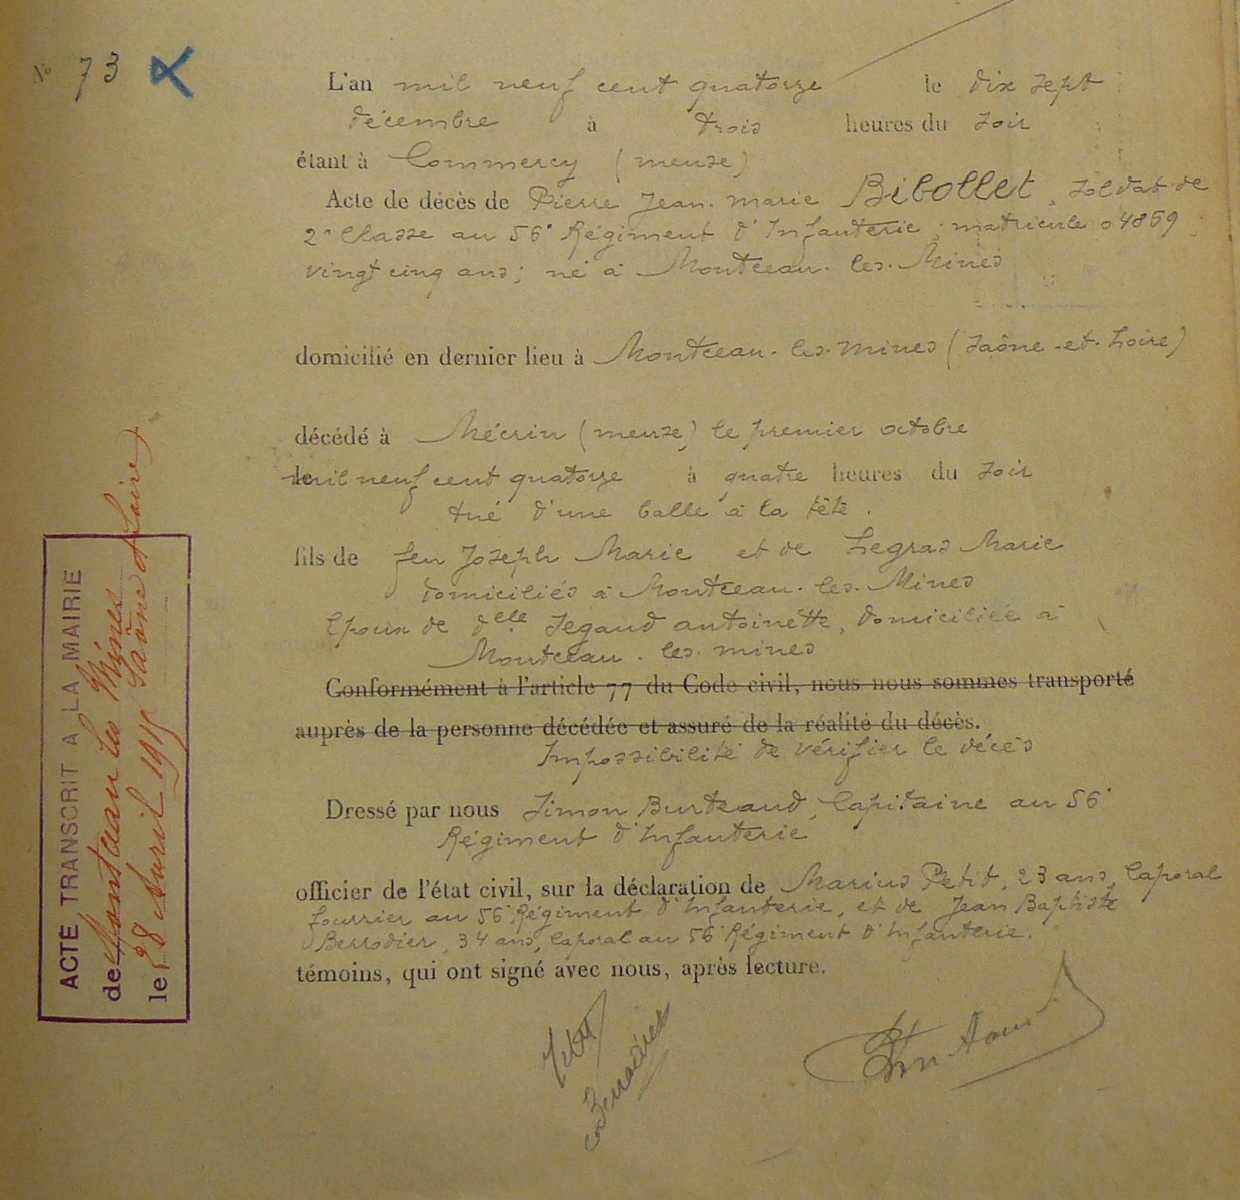 N° 73
L'an mil neuf cent quatorze le dix sept
décembre à trois heures du soir
étant à Commercy (meuse)
Acte de décès de Pierre Jean-marie Bibollet, soldat de
2e Classe au 56e Régiment d'Infanterie; matricule 04869
vingt cinq ans; né à Montceau-les-Mines
domicilié en dernier lieu à Montceau-les-mines (Saône-et-Loire)
décédé à Mécrin (meuse) le premier octobre
mil neuf cent quatorze à quatre heures du soir
tué d'une balle à la tête.
fils de feu Joseph Marie et de Legras Marie
domiciliés à Montceau-les-Mines
Epoux de delle Segaud antoinette, domiciliée à
Montceau-les-mines
Conformément à l'article 77 du Code civil, nous nous sommes transporté
auprès de la personne décédée et assuré de la réalité du décès.
Impossibilité de vérifier le décès
Dressé par nous Simon Burteaud, Capitaine au 56e
Régiment d'Infanterie
officier de l'état civil, sur la déclaration de Marius Petit, 23 ans, Caporal
fourrier au 56e Régiment d'Infanterie, et de Jean Baptiste
Berrodier, 34 ans, Caporal au 56e Régiment d'Infanterie.
témoins, qui ont signé avec nous, après lecture.
Petit
Berrodier
ACTE TRANSCRIT A LA MAIRIE
de Montceau les Mines
le 28 Avril 1915 (Saône et Loire)